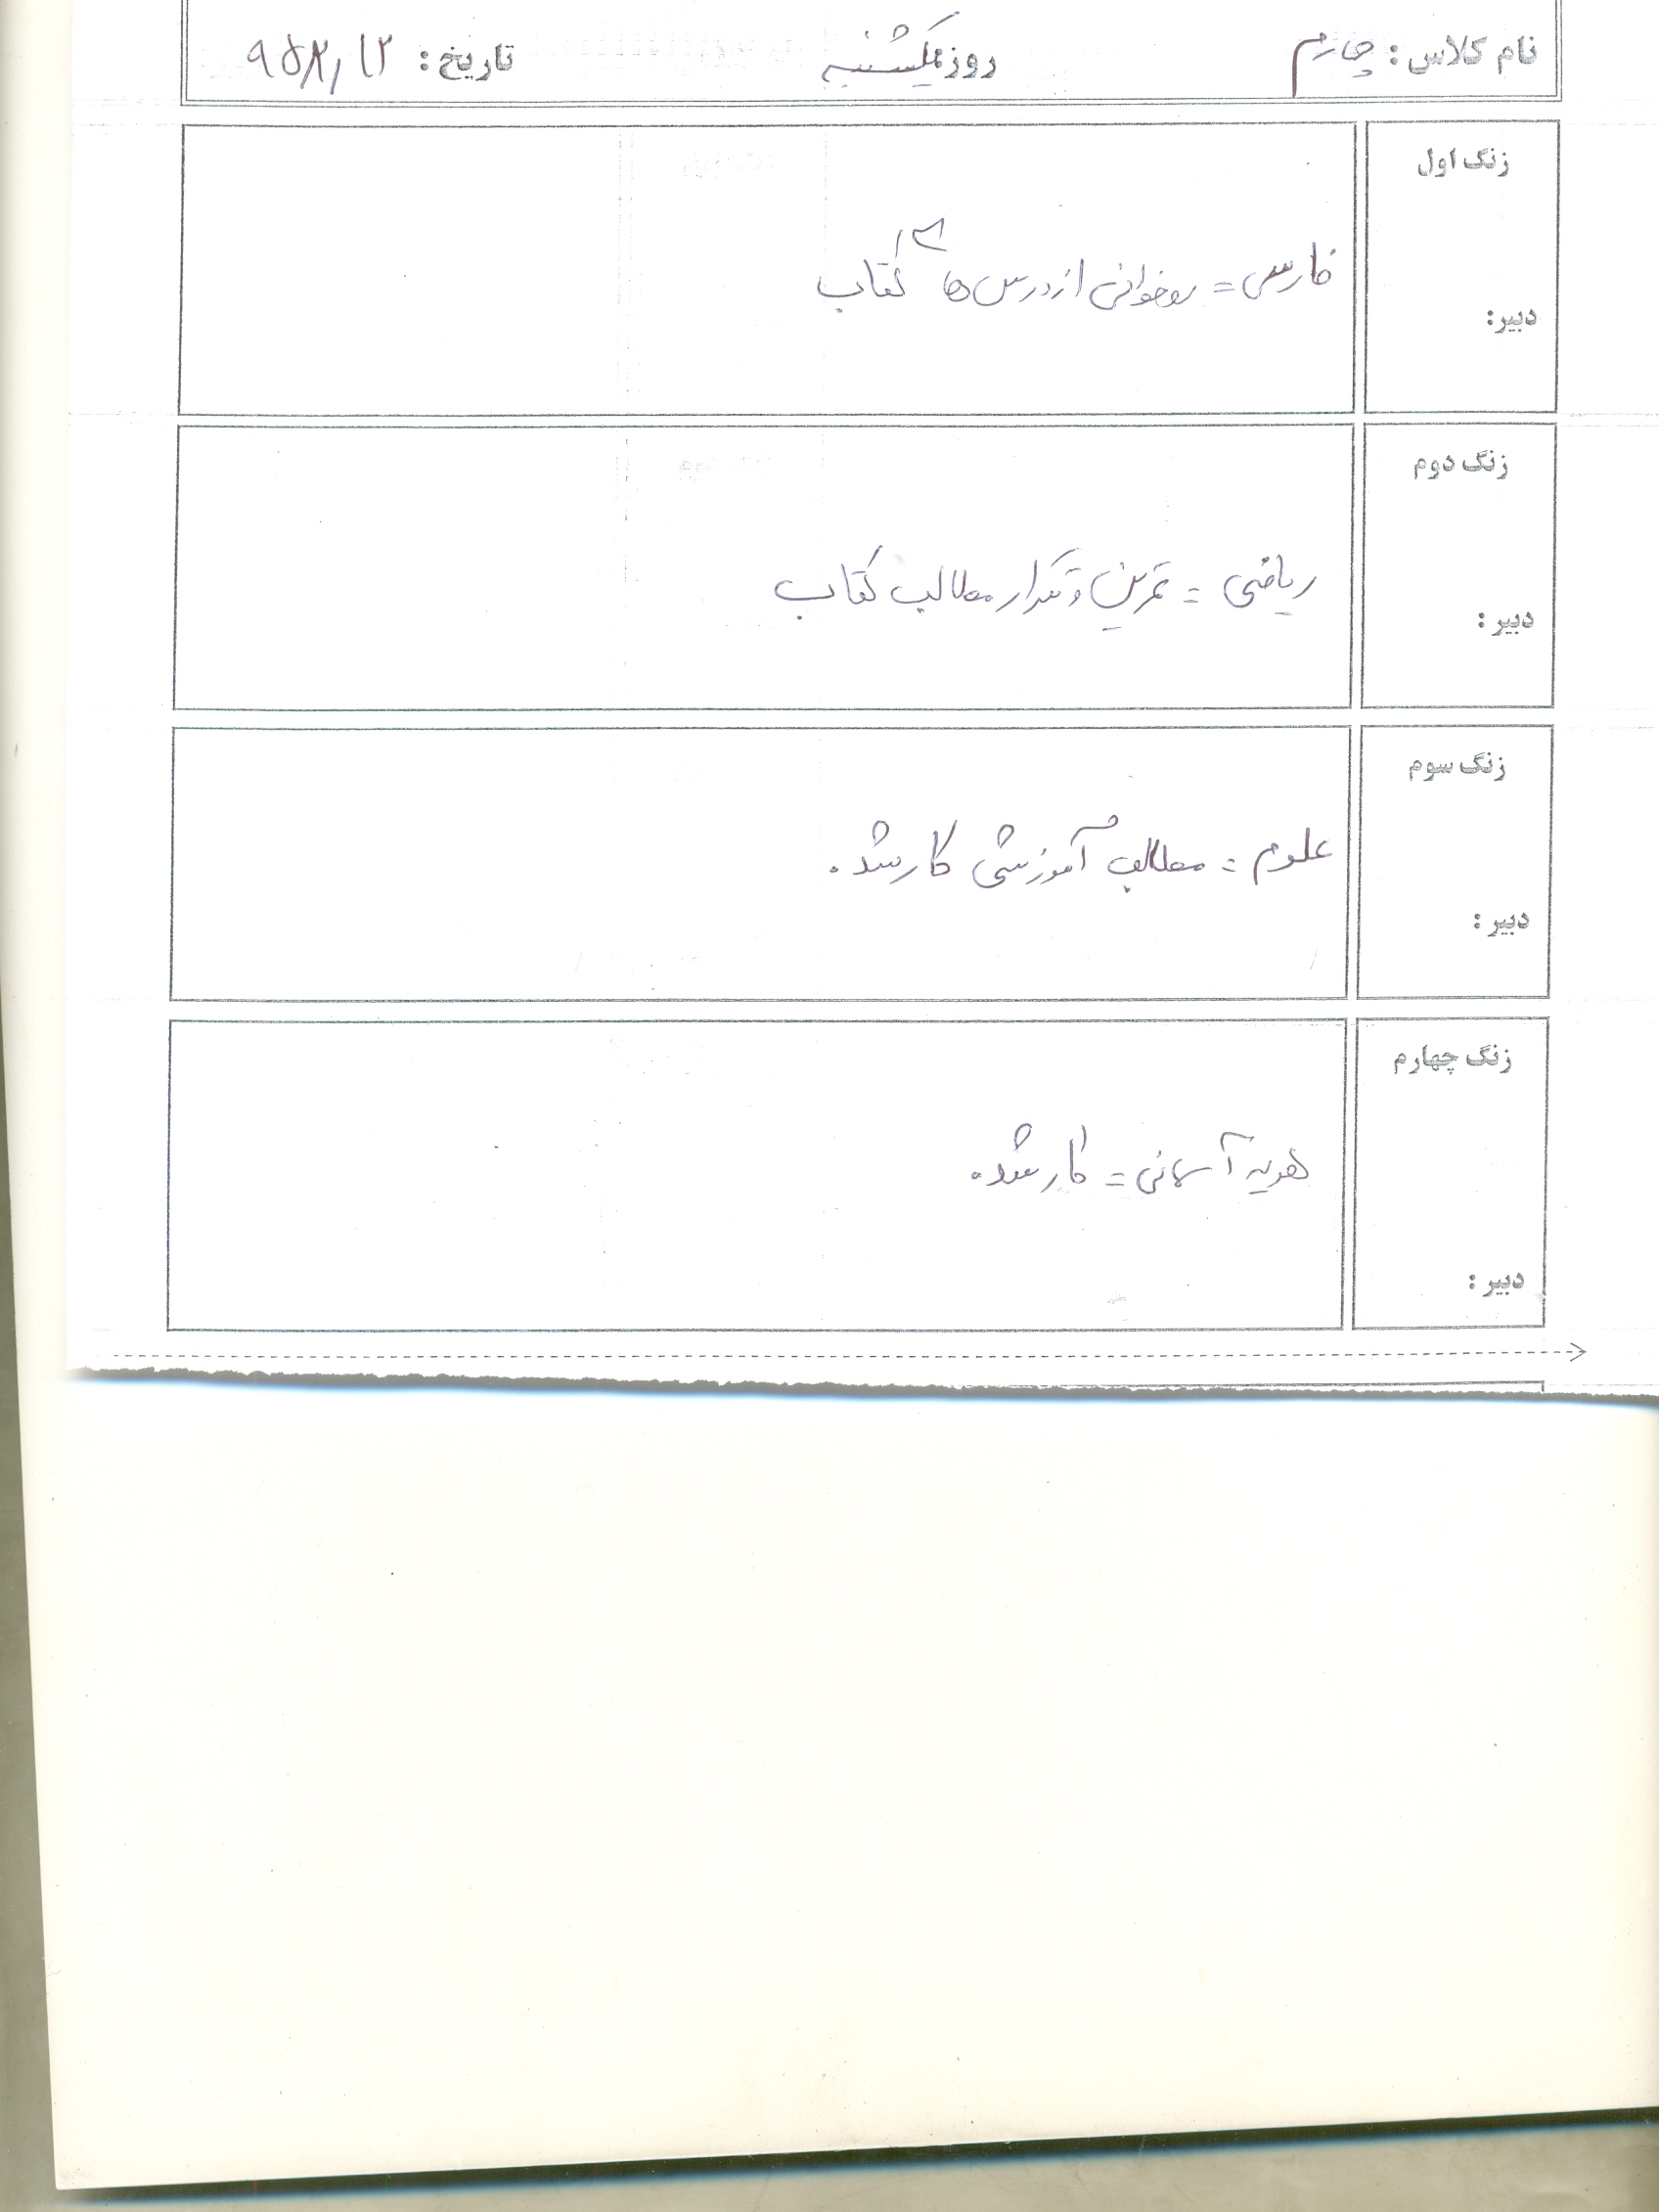 نام کلاس : چهارم روز: یکشنبه تاریخ : ۹۵/۲/۱۲
زنگ اول
فارسی = روخوانی از درس های کتاب
دبیر:
زنگ دوم
ریاضی = تمرین و تکرار مطالب کتاب
دبیر :
زنگ سوم
علوم = مطالب آموزشی کار شد .
دبیر :
زنگ چهارم
هدیه آسمانی = کار شد .
دبیر :